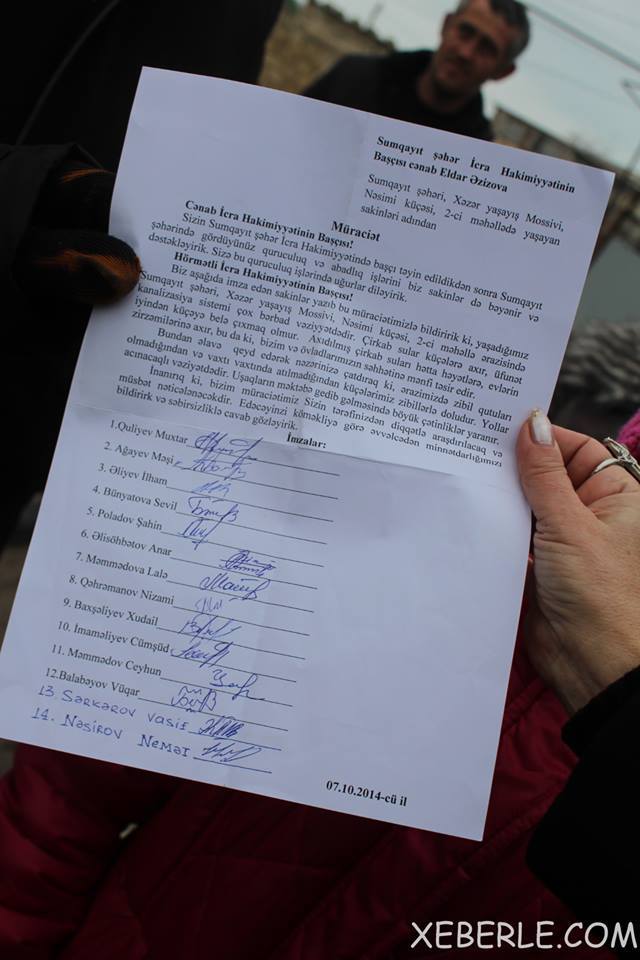 Sumqayıt şəhər İcra Hakimiyyətinin
Başçısı cənab Eldar Əzizova
Sumqayıt şəhəri, Xəzər yaşayış Mossivi,
Nəsimi küçəsi, 2-ci məhəllədə yaşayan
sakinləri adından
Müraciət
Cənab İcra Hakimiyyətinin Başçısı!
Sizin Sumqayıt şəhər İcra Hakimiyyətində başçı təyin edildikdən sonra Sumqayıt
şəhərində gördüyünüz quruculuq və abadlıq işlərini biz sakinlər də bəyənir və
dəstəkləyirik. Sizə bu quruculuq işlərində uğurlar diləyirik.
Hörmətli İcra Hakimiyyətinin Başçısı!
Biz aşağıda imza edən sakinlər yazıb bu müraciətimizlə bildiririk ki, yaşadığımız
Sumqayıt şəhəri, Xəzər yaşayış Mossivi, Nəsimi küçəsi, 2-ci məhəllə ərazisində
kanalizasiya sistemi çox bərbad vəziyyətdədir. Çirkab sular küçələrə axır, üfunət
iyindən küçəyə belə çıxmaq olmur. Axıdılmış çirkab suları hətta həyətlərə, evlərin
zirzəmilərinə axır, bu da ki, bizim və övladlarımızın səhhətinə mənfi təsir edir.
Bundan əlavə qeyd edərək nəzərinizə çatdıraq ki, ərazimizdə zibil qutuları
olmadığından və vaxtı vaxtında atılmadığından küçələrimiz zibillərlə doludur. Yollar
acınacaqlı vəziyətdədir. Uşaqların məktəbə gedib gəlməsində böyük çətinliklər yaranır.
İnanırıq ki, bizim müraciətimiz Sizin tərəfinizdən diqqətlə araşdırılacaq və
müsbət nəticələnəcəkdir. Edəcəyinzi köməkliyə görə əvvəlcədən minnətdarlığımızı
bildirirk və səbirsizliklə cavab gözləyirik.
İmzalar:
1.Quliyev Muxtar
2. Ağayev Məşi
3. Əliyev İlham
4. Bünyatova Sevil
5. Poladov Şahin
6. Əlisöhbətov Anar
7. Məmmədova Lalə
8. Qəhrəmanov Nizami
9. Baxşəliyev Xudail
10. İmaməliyev Cümşüd
11. Məmmədov Ceyhun
12.Balabəyov Vüqar
13. Sərkərov Vasif
14. Nəsirov Nemət
07.10.2014-cü il
XEBERLE.COM